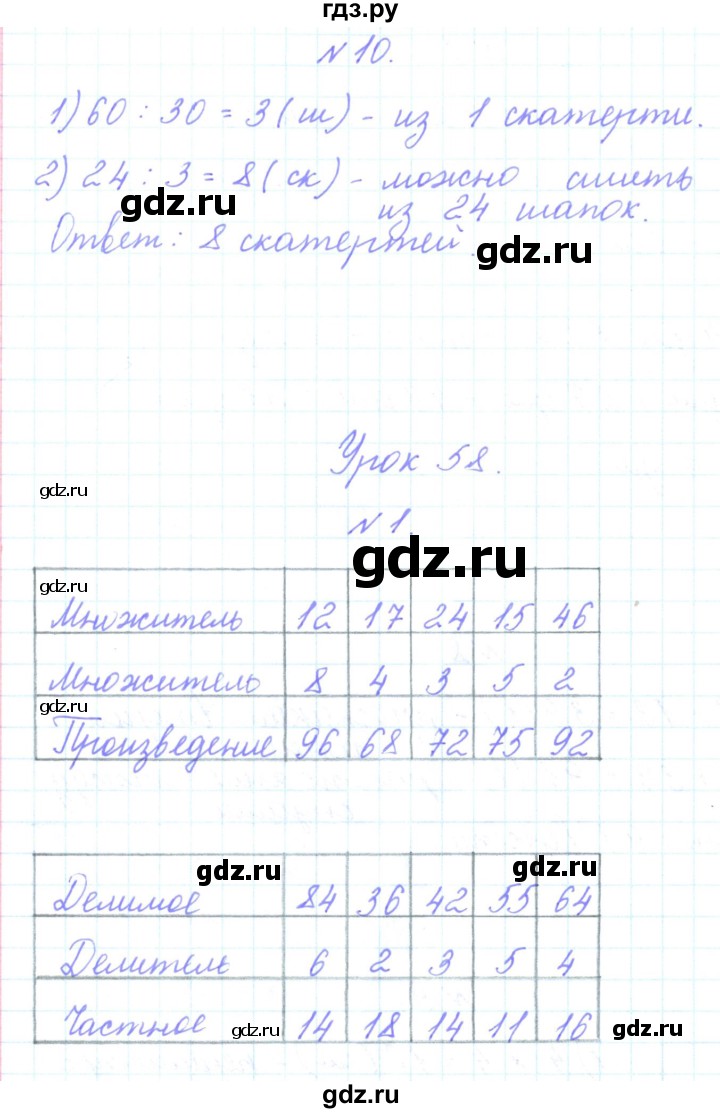 гдз.ру
№10.
1) 60 : 30 = 3 (ш) - из 1 скатерти.
2) 24 : 3 = 8 (ск) - можно сшить
gdz.ru
из 24 шапок.
Ответ: 8 скатертей.
gdz.ru
Урок 58.
gdz.ru
№1.
gdz.ru
gdz.ru
Множитель 12 17 24 15 46
Множитель 8 4 3 5 2
gdz.ru
Произведение 96 68 72 75 92
gdz.ru
gdz.ru
Делимое 84 36 42 55 64
Делитель 6 2 3 5 4
Частное gdz.ru 14 18 14 11 16 gdz.ru
gdz.ru